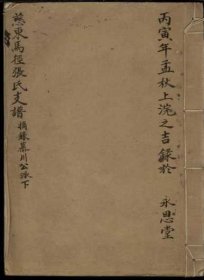 丙寅年孟秋上浣之吉錄於
永思堂
慈東馬徑張氏支譜
摘錄慕川公派下